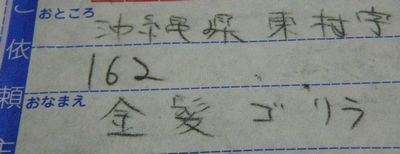 ご依頼主
おところ
沖縄県東村字
162
おなまえ
金髪ゴリラ